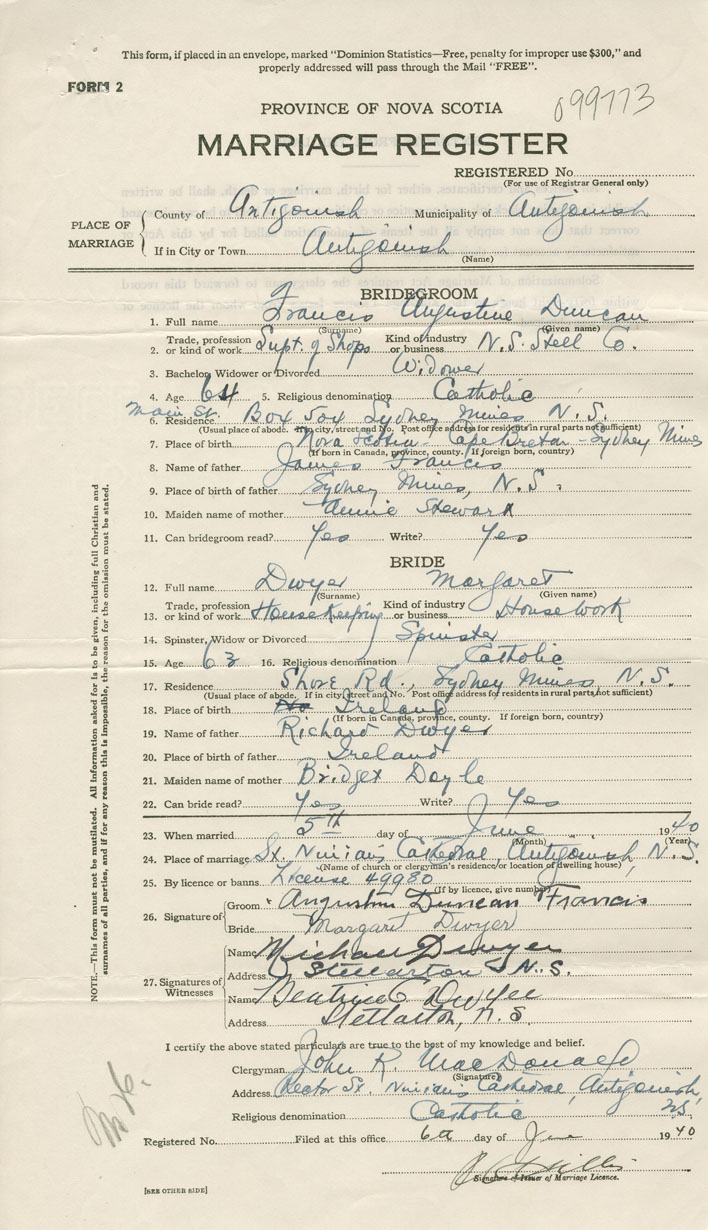 This form, if placed in an envelope, marked "Dominion Statistics—Free, penalty for improper use $300," and
properly addressed will pass through the Mail "FREE".
FORM 2
099773
PROVINCE OF NOVA SCOTIA
MARRIAGE REGISTER
REGISTERED No.
(For use of Registrar General only)
PLACE OF MARRIAGE
County of Antigonish Municipality of Antigonish
If in City or Town Antigonish
(Name)
BRIDEGROOM
1. Full name Francis Augustine Duncan
(Surname) (Given name)
2. Trade, profession or kind of work Supt. of Shops Kind of industry or business N.S. Steel Co.
3. Bachelor, Widower or Divorced Widower
4. Age 64 5. Religious denomination Catholic
6. Residence Main St. Box 504 Sydney Mines N.S.
(Usual place of abode. If in city, street and No. Post office address for residents in rural parts not sufficient)
7. Place of birth Nova Scotia - Cape Breton - Sydney Mines
(If born in Canada, province, county. If foreign born, country)
8. Name of father James Francis
9. Place of birth of father Sydney Mines, N.S.
10. Maiden name of mother Annie Stewart
11. Can bridegroom read? Yes Write? Yes
BRIDE
12. Full name Dwyer Margaret
(Surname) (Given name)
13. Trade, profession or kind of work Housekeeping Kind of industry or business Housework
14. Spinster, Widow or Divorced Spinster
15. Age 63 16. Religious denomination Catholic
17. Residence Shore Rd., Sydney Mines N.S.
(Usual place of abode. If in city, street and No. Post office address for residents in rural parts not sufficient)
18. Place of birth Ireland
(If born in Canada, province, county. If foreign born, country)
19. Name of father Richard Dwyer
20. Place of birth of father Ireland
21. Maiden name of mother Bridget Doyle
22. Can bride read? Yes Write? Yes
23. When married 5th day of June 1940
(Month) (Year)
24. Place of marriage St. Ninian's Cathedral, Antigonish, N.S.
(Name of church or clergyman's residence/or location of dwelling house)
25. By licence or banns License 49980
(If by licence, give number)
26. Signature of
Groom Augustine Duncan Francis
Bride Margaret Dwyer
27. Signatures of Witnesses
Name Michael Dwyer
Address Stellarton N.S.
Name Beatrice C. Dwyer
Address Stellarton, N.S.
I certify the above stated particulars are true to the best of my knowledge and belief.
Clergyman John R. MacDonald
(Signature)
Address Rector St. Ninian's Cathedral, Antigonish, N.S.
Religious denomination Catholic
Registered No. Filed at this office 6th day of June 1940
Signature of Issuer of Marriage Licence.
[SEE OTHER SIDE]
NOTE.—This form must not be mutilated. All information asked for is to be given, including full Christian and
surnames of all parties, and if for any reason this is impossible, the reason for the omission must be stated.